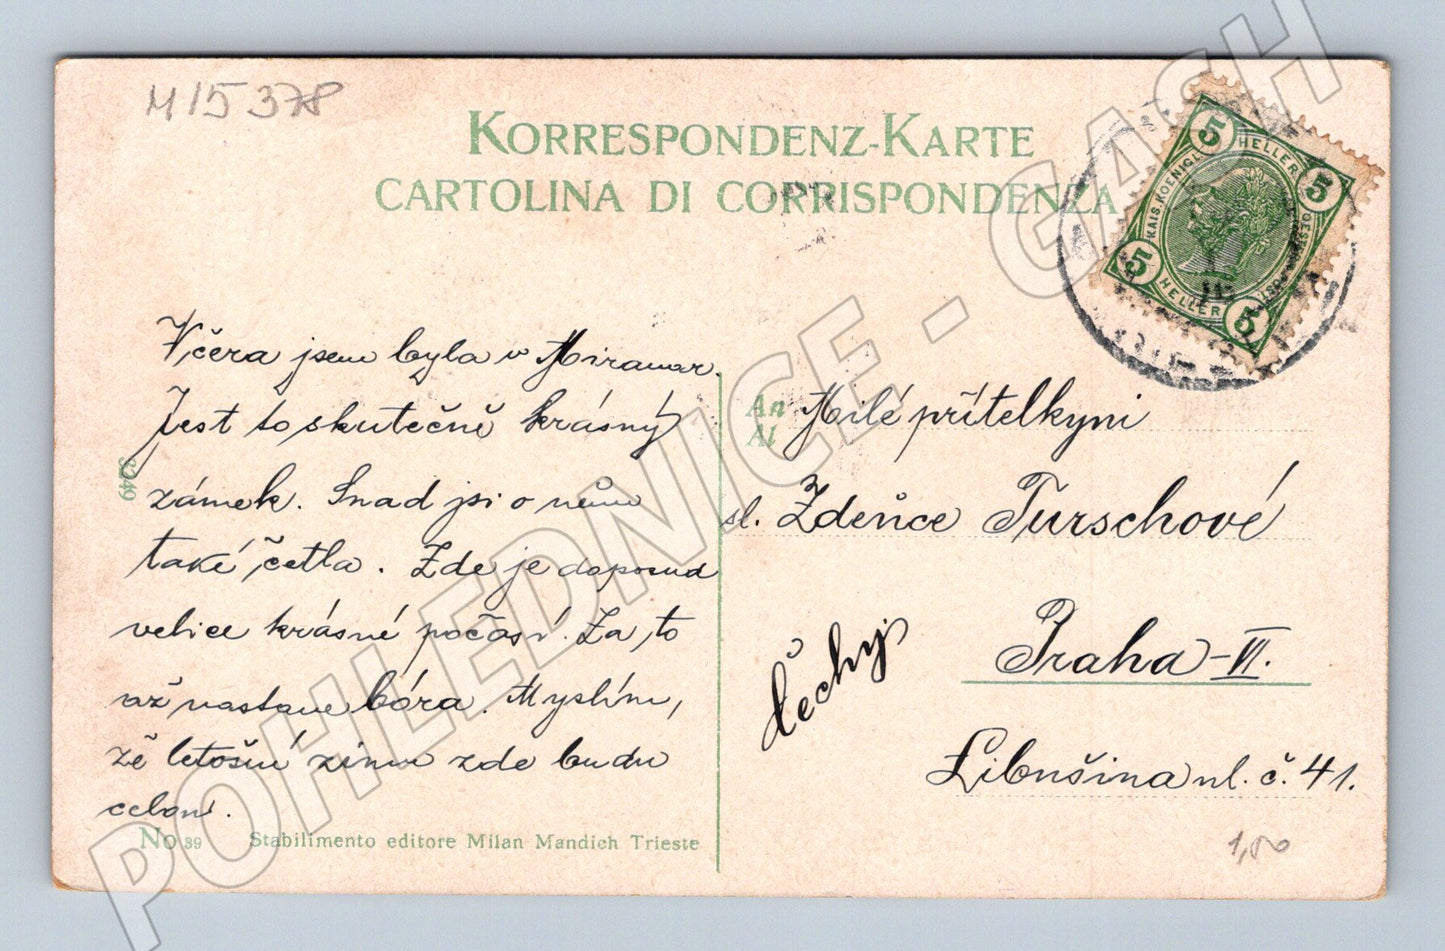 M15378
KORRESPONDENZ-KARTE
CARTOLINA DI CORRISPONDENZA
5 HELLER 5
KAIS. KOENIGL.
5 HELLER 5
Včera jsem byla v Miramar.
Jest to skutečně krásný
zámek. Snad jsi o něm
také četla. Zde je doposud
velice krásné počasí. Za to
až nastane bóra. Myslím,
že letošní zimu zde budu
celou.
3249
An
Al
Milé přítelkyni
sl. Zdeňce Turschové
Praha-VI.
Čechy.
Libušina ul. č. 41.
No 39 Stabilimento editore Milan Mandich Trieste
1,50
POHLEDNICE - GASH